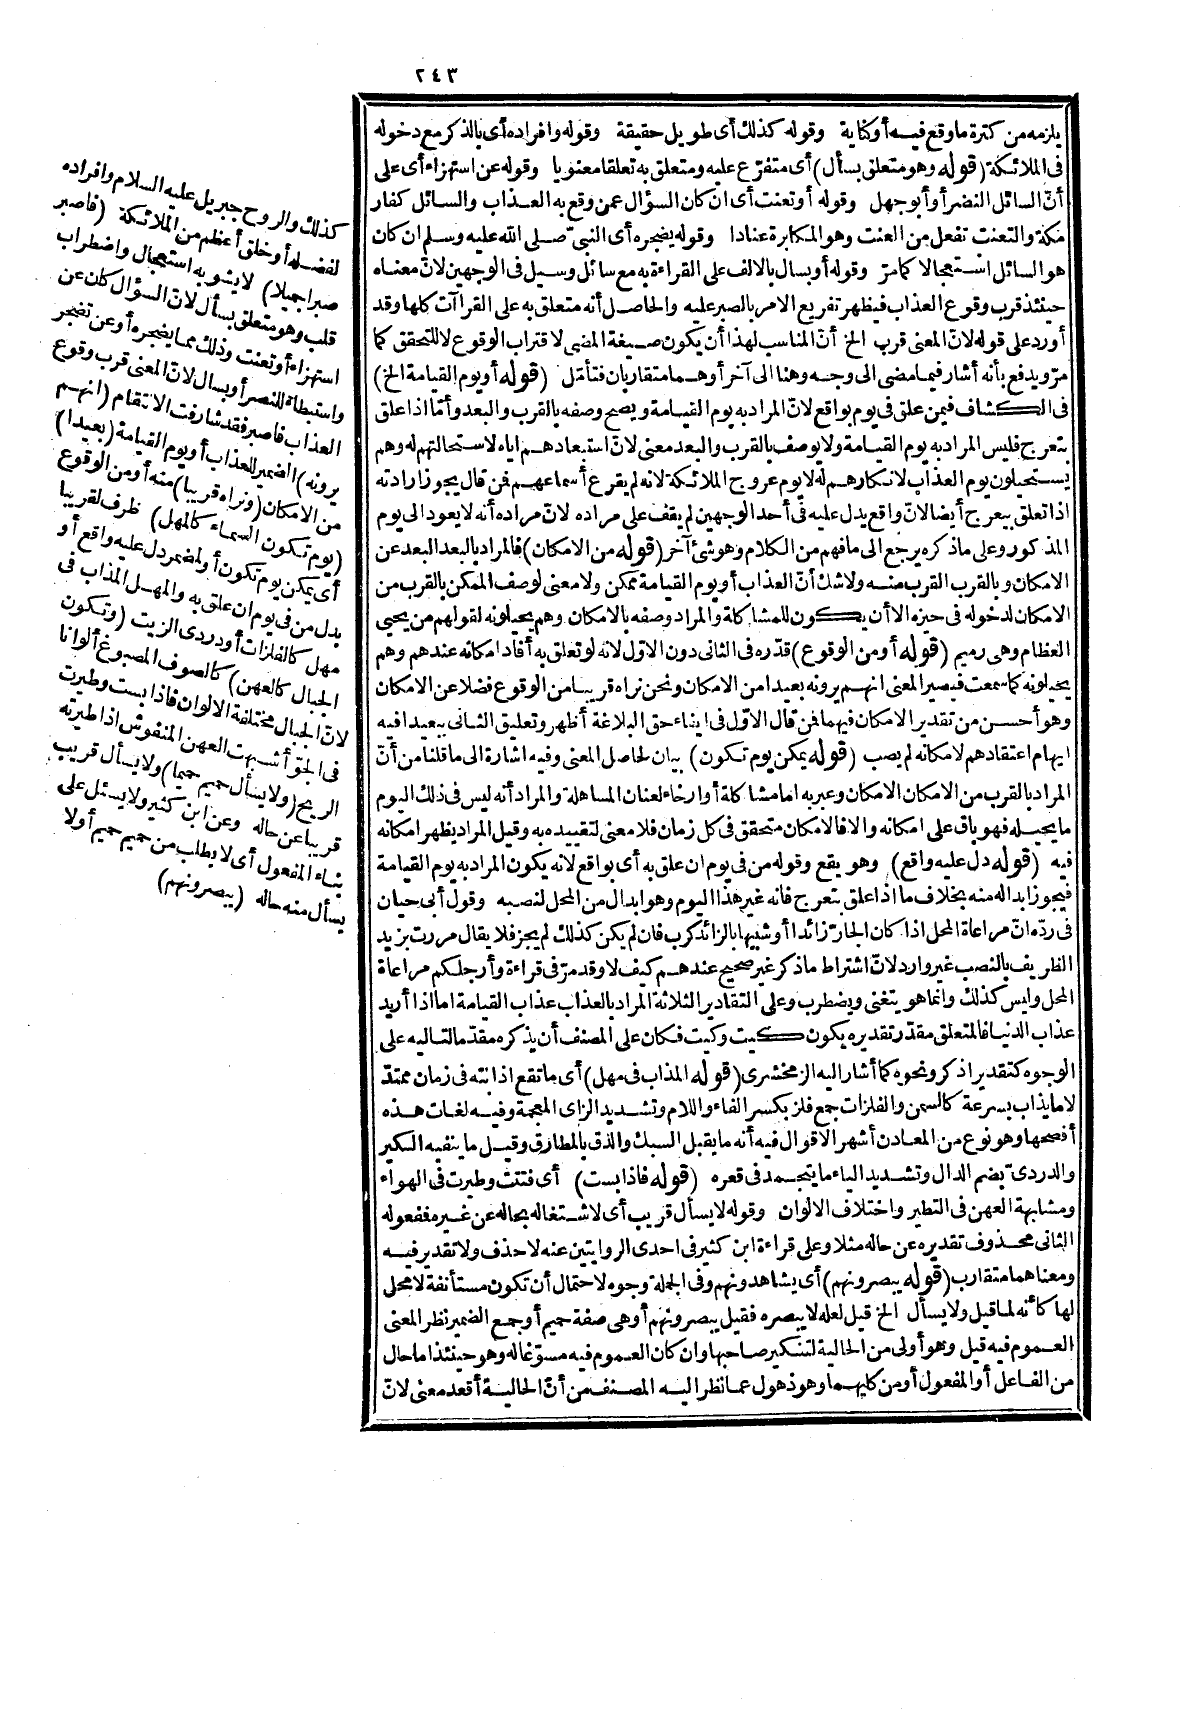 ٢٤٣
يلزمه من كثرة ما وقع فيه أو كناية وقوله كذلك أى طويل حقيقة وقوله وافراده أى بالذكر مع دخوله
فى الملائكة (قوله وهو متعلق بسأل) أى متفرّع عليه ومتعلق به تعلقا معنويا وقوله عن استهزاء أى على
أنّ السائل النضر أو أبو جهل وقوله أو تعنت أى ان كان السؤال عمن وقع به العذاب والسائل كفار
مكة والتعنت تفعل من العنت وهو المكابرة عنادا وقوله يضجره أى النبىّ صلى الله عليه وسلم ان كان
هو السائل استعجالا كما مرّ وقوله أو بسال بالالف على القراءة به مع سائل وسيل فى الوجهين لانّ معناه
حينئذ قرب وقوع العذاب فيظهر تفريع الامر بالصبر عليه والحاصل أنه متعلق به على القراآت كلها وقد
أورد على قوله لانّ المعنى قرب الخ أنّ المناسب لهذا أن يكون صيغة المضى لاقتراب الوقوع لا للتحقق كما
مرّ ويدفع بأنه أشار فيما مضى الى وجه وهنا الى آخر أو هما متقاربان فتأمّل (قوله أو يوم القيامة الخ)
فى الكشاف فيمن علق فى يوم بواقع لانّ المراد به يوم القيامة ويصح وصفه بالقرب والبعد وأمّا اذا علق
بتعرج فليس المراد به يوم القيامة ولا يوصف بالقرب والبعد معنى لانّ استبعادهم اياه لاستحالتهم له وهم
يستحيلون يوم العذاب لانكارهم له لا يوم عروج الملائكة لانه لم يقرع أسماعهم فمن قال يجوز ارادته
اذا تعلق بيعرج أيضا لانّ واقع يدل عليه فى أحد الوجهين لم يقف على مراده لانّ مراده أنه لا يعود الى يوم
المذكور وعلى ما ذكره يرجع الى ما فهم من الكلام وهو شئ آخر (قوله من الامكان) فالمراد بالبعد البعد عن
الامكان وبالقرب القرب منه ولا شك أنّ العذاب أو يوم القيامة ممكن ولا معنى لوصف الممكن بالقرب من
الامكان لدخوله فى حيزه الا أن يكون للمشاكلة والمراد وصفه بالامكان وهم يحيلونه لقولهم من يحيى
العظام وهى رميم (قوله أو من الوقوع) قدّره فى الثانى دون الاوّل لانه لو تعلق به أفاد امكانه عندهم وهم
يحيلونه كما سمعت فيصير المعنى انهم يرونه بعيدا من الامكان ونحن نراه قريبا من الوقوع فضلا عن الامكان
وهو أحسن من تقدير الامكان فيهما فمن قال الاوّل فى ايتاء حق البلاغة أظهر وتعليق الثانى ببعيدا فيه
ايهام اعتقادهم لامكانه لم يصب (قوله يمكن يوم تكون) بيان لحاصل المعنى وفيه اشارة الى ما قلنا من أنّ
المراد بالقرب من الامكان الامكان وعبر به اما مشاكلة أو ارخاء لعنان المساهلة والمراد أنه ليس فى ذلك اليوم
ما يحيله فهو باق على امكانه والا فالامكان متحقق فى كل زمان فلا معنى لتقييده به وقيل المراد يظهر امكانه
فيه (قوله دل عليه واقع) وهو يقع وقوله من فى يوم ان علق به أى بواقع لانه يكون المراد به يوم القيامة
فيجوز ابداله منه بخلاف ما اذا علق بتعرج فانه غير هذا اليوم وهو ابدال من المحل لنصبه وقول أبى حيان
فى ردّه انّ مراعاة المحل اذا كان الجارّ زائدا أو شبيها بالزائد كرب فان لم يكن كذلك لم يجز فلا يقال مررت بزيد
الظريف بالنصب غير وارد لانّ اشتراط ما ذكر غير صحيح عندهم كيف لا وقد مرّ فى قراءة وأرجلكم مراعاة
المحل وليس كذلك وانما هو يتغنى ويضطرب وعلى التقادير الثلاثة المراد بالعذاب عذاب القيامة اما اذا أريد
عذاب الدنيا فالمتعلق مقدّر تقديره يكون كيت وكيت فكان على المصنف أن يذكره مقدّما لتاليه على
الوجوه كتقدير اذكر ونحوه كما أشار اليه الزمخشرى (قوله المذاب فى مهل) أى ما تقع اذابته فى زمان ممتدّ
لا ما يذاب بسرعة كالسمن والفلزات جمع فلز بكسر الفاء واللام وتشديد الزاى المعجمة وفيه لغات هذه
أفصحها وهو نوع من المعادن أشهر الاقوال فيه أنه ما يقبل السبك والدق بالمطارق وقيل ما ينفيه الكير
والدردىّ بضم الدال وتشديد الياء ما يتجمد فى قعره (قوله فاذا بست) أى فتتت وطيرت فى الهواء
ومشابهة العهن فى التطير واختلاف الالوان وقوله لا يسأل قريب أى لاشتغاله بحاله عن غيره فمفعوله
الثانى محذوف تقديره عن حاله مثلا وعلى قراءة ابن كثير فى احدى الروايتين عنه لا حذف ولا تقدير فيه
ومعناهما متقارب (قوله يبصرونهم) أى يشاهدونهم وفى الجملة وجوه لاحتمال أن تكون مستأنفة لا محل
لها كأنه لما قيل ولا يسأل الخ قيل لعله لا يبصره فقيل يبصرونهم أو هى صفة حميم أو جمع الضمير نظر المعنى
العموم فيه قيل وهو أولى من الحالية لتنكير صاحبها وان كان العموم فيه مسوّغا له وهو حينئذ اما حال
من الفاعل أو المفعول أو من كليهما وهو ذهول عما نظر اليه المصنف من أنّ الحالية أقعد معنى لانّ
كذلك والروح جبريل عليه السلام وافراده
لفضله أو خلق أعظم من الملائكة (فاصبر
صبرا جميلا) لا يشوبه استعجال واضطراب
قلب وهو متعلق بسأل لانّ السؤال كان عن
استهزاء أو تعنت وذلك مما يضجره أو عن تضجر
واستبطاء للنصر أو بسال لانّ المعنى قرب وقوع
العذاب فاصبر فقد شارفت الانتقام (انهم
يرونه) الضمير للعذاب أو يوم القيامة (بعيدا)
من الامكان (ونراه قريبا) منه أو من الوقوع
(يوم تكون السماء كالمهل) ظرف لقريبا
أى يمكن يوم تكون أو لمضمر دل عليه واقع أو
بدل من فى يوم ان علق به والمهل المذاب فى
مهل كالفلزات أو دردى الزيت (وتكون
الجبال كالعهن) كالصوف المصبوغ ألوانا
لانّ الجبال مختلفة الالوان فاذا بست وطيرت
فى الجوّ أشبهت العهن المنفوش اذا طيرته
الريح (ولا يسأل حميم حميما) ولا يسأل قريب
قريبا عن حاله وعن ابن كثير ولا يسئل على
بناء المفعول أى لا يطلب من حميم حميم أو لا
يسأل منه حاله (يبصرونهم)